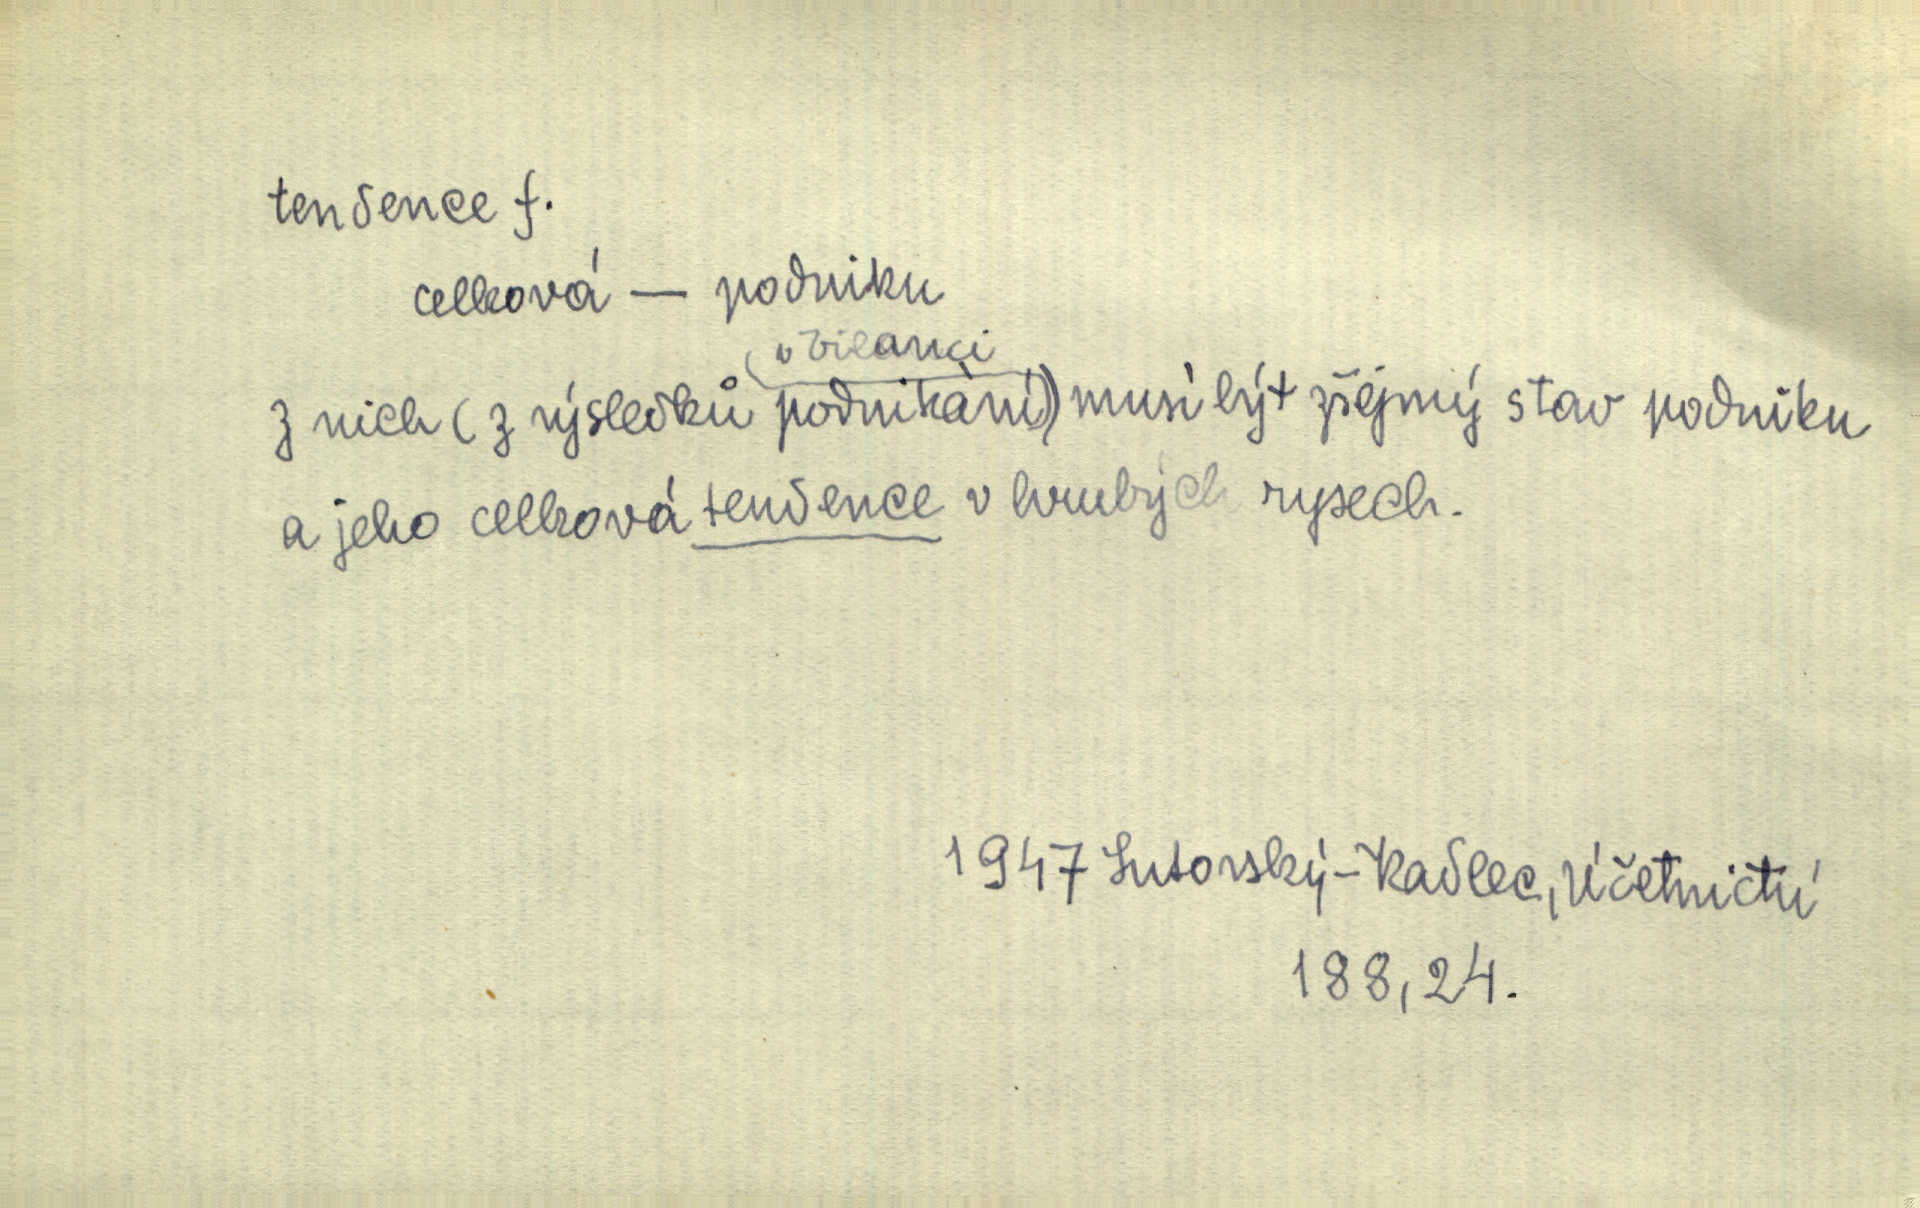 tendence f.
celková — podniku
v bilanci
z nich (z výsledků podnikání) musí být zřejmý stav podniku
a jeho celková tendence v hrubých rysech.
1947 Lutovský-Kadlec, Účetnictví
188, 24.